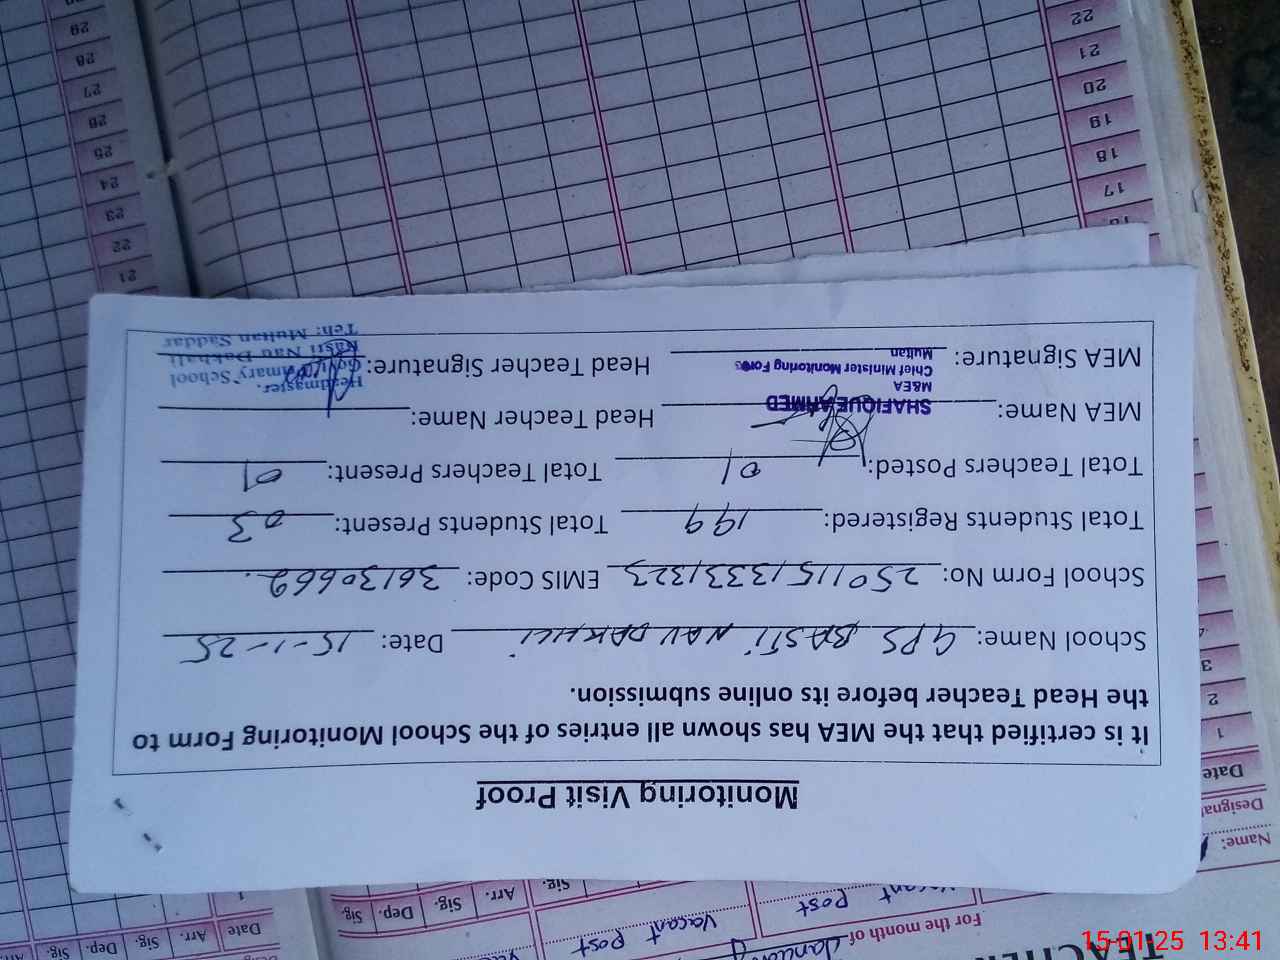 TEACHER
For the month of January
Name:
Designa
Vacant Post
Vacant Post
Date
Arr. Sig. Dep. Sig.
Monitoring Visit Proof
It is certified that the MEA has shown all entries of the School Monitoring Form to
the Head Teacher before its online submission.
School Name: GPS BASTI NAU DAKHLI Date: 15-1-25
School Form No: 25011513331323 EMIS Code: 36130669
Total Students Registered: 199 Total Students Present: 03
Total Teachers Posted: 01 Total Teachers Present: 01
MEA Name: Head Teacher Name:
SHAFIQUE AHMED
M&EA
Chief Minister Monitoring Force
Multan
MEA Signature: Head Teacher Signature:
Headmaster.
Govt. Primary School
Basti Nau Dakhali
Teh: Multan Saddar
1
2
3
17
18
19
20
21
22
21
22
23
24
25
26
27
28
29
15-01-25 13:41